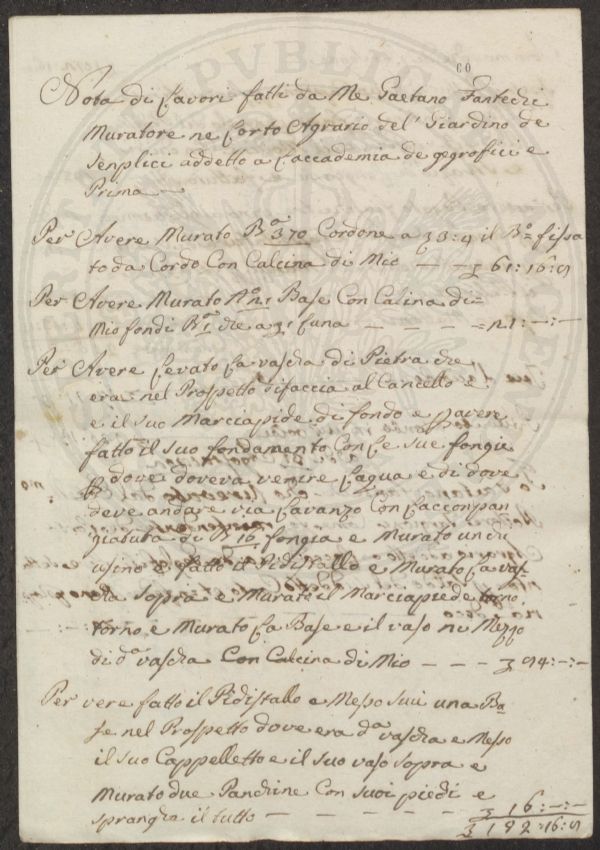 60
Nota di Lavori fatti da Me Gaetano Fantechi
Muratore ne Lorto Agrario del' Giardino de
Senplici addetto a Laccademia de gegrofici e
Prima
Per Avere Murato Ba 370 Cordone a 3:4 il Bo fissa
to da Cordo Con Calcina di Mio 61:16:9
Per Avere Murato No 21 Base Con Calina di=
Mio fondi Ba 1 che a 1 Luna = 21:-:-
Per Avere Levato La vascha di Pietra che
era nel Prospetto difaccia al Cancello e
e il suo Marciapide di fondo e Pavere
fatto il suo fondamento Con Le sue fongie
dove doveva venire Laqua e di dove
deve andare via Lavanzo Con Laccompan
giatura di B 16 fongia e Murato un cu
usino e fatto il Pidistallo e Murato La vas
cha sopra e Murato il Marciapiede torno
torno e Murato La Base e il vaso ni Mezzo
di da vascha Con Calcina di Mio 94:-:-
Per vere fatto il Pidistallo e Messo sui una Ba
se nel Prospetto dove era da vascha e Messo
il suo Cappelletto e il suo vaso sopra e
Murato due Panchine Con suoi piedi e
sprangha il tutto 16:-:-
192:16:9